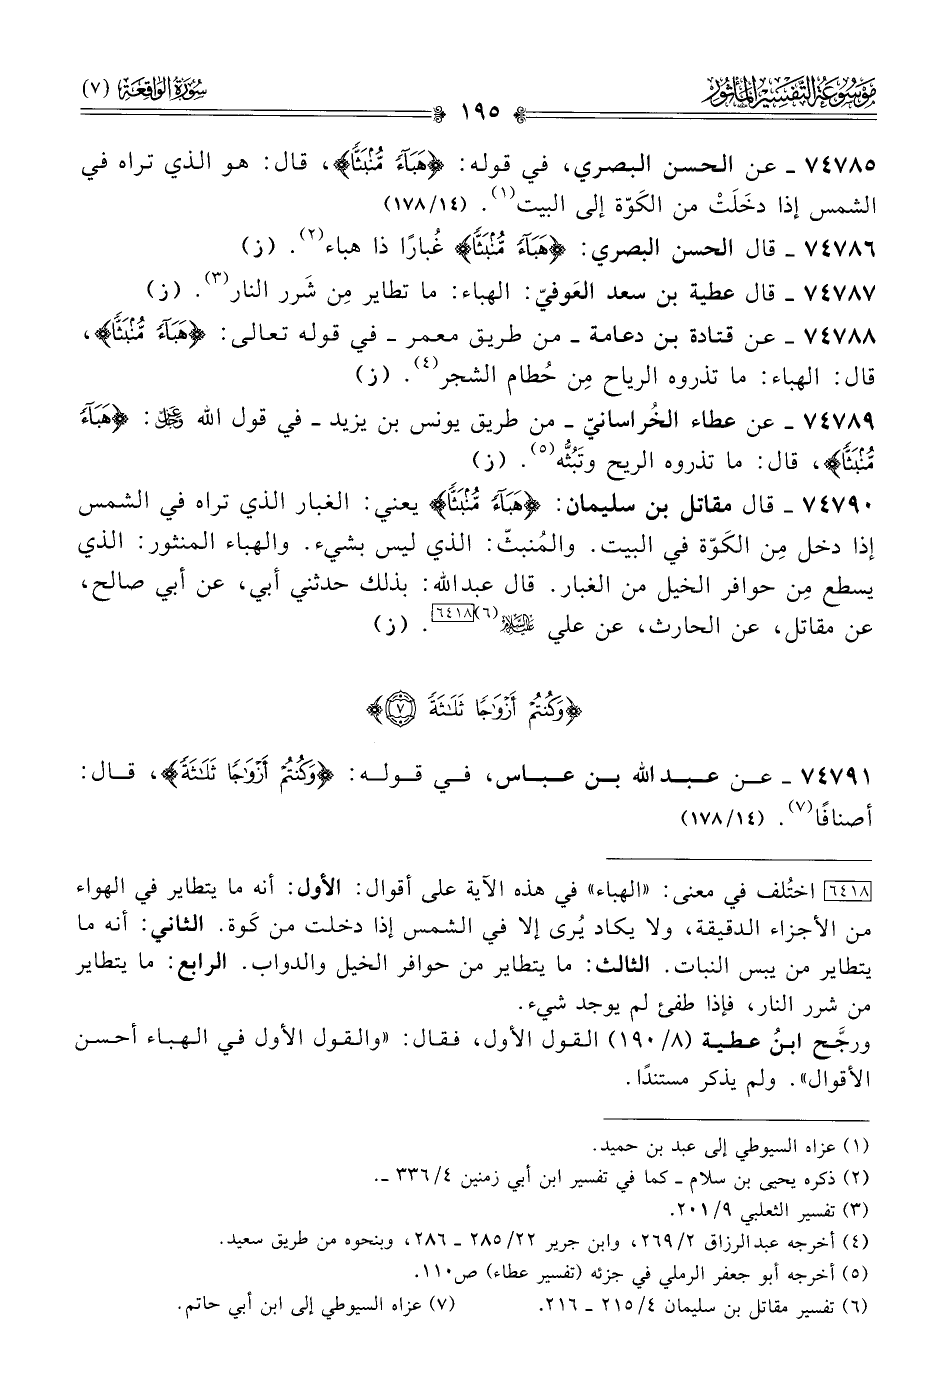 موسوعة التفسير المأثور
سورة الواقعة (٧)
١٩٥
٧٤٧٨٥ ـ عن الحسن البصري، في قوله: ﴿هَبَآءً مُّنۢبَثًّا﴾، قال: هو الذي تراه في
الشمس إذا دخَلَتْ من الكَوّة إلى البيت(١). (١٧٨/١٤)
٧٤٧٨٦ ـ قال الحسن البصري: ﴿هَبَآءً مُّنۢبَثًّا﴾ غُبارًا ذا هباء(٢). (ز)
٧٤٧٨٧ ـ قال عطية بن سعد العَوفيّ: الهباء: ما تطاير مِن شَرر النار(٣). (ز)
٧٤٧٨٨ ـ عن قتادة بن دعامة ـ من طريق معمر ـ في قوله تعالى: ﴿هَبَآءً مُّنۢبَثًّا﴾،
قال: الهباء: ما تذروه الرياح مِن حُطام الشجر(٤). (ز)
٧٤٧٨٩ ـ عن عطاء الخُراسانيّ ـ من طريق يونس بن يزيد ـ في قول الله ﷿: ﴿هَبَآءً
مُّنۢبَثًّا﴾، قال: ما تذروه الريح وتَبُثُّه(٥). (ز)
٧٤٧٩٠ ـ قال مقاتل بن سليمان: ﴿هَبَآءً مُّنۢبَثًّا﴾ يعني: الغبار الذي تراه في الشمس
إذا دخل مِن الكَوّة في البيت. والمُنبثّ: الذي ليس بشيء. والهباء المنثور: الذي
يسطع مِن حوافر الخيل من الغبار. قال عبدالله: بذلك حدثني أبي، عن أبي صالح،
عن مقاتل، عن الحارث، عن علي عليه السلام(٦)[٦٤١٨]. (ز)
﴿وَكُنتُمْ أَزْوَٰجًا ثَلَٰثَةً ٧﴾
٧٤٧٩١ ـ عن عبدالله بن عباس، في قوله: ﴿وَكُنتُمْ أَزْوَٰجًا ثَلَٰثَةً﴾، قال:
أصنافًا(٧). (١٧٨/١٤)
[٦٤١٨] اختُلف في معنى: «الهباء» في هذه الآية على أقوال: الأول: أنه ما يتطاير في الهواء
من الأجزاء الدقيقة، ولا يكاد يُرى إلا في الشمس إذا دخلت من كَوة. الثاني: أنه ما
يتطاير من يبس النبات. الثالث: ما يتطاير من حوافر الخيل والدواب. الرابع: ما يتطاير
من شرر النار، فإذا طفئ لم يوجد شيء.
ورجَّح ابنُ عطية (١٩٠/٨) القول الأول، فقال: «والقول الأول في الهباء أحسن
الأقوال». ولم يذكر مستندًا.
(١) عزاه السيوطي إلى عبد بن حميد.
(٢) ذكره يحيى بن سلام ـ كما في تفسير ابن أبي زمنين ٣٣٦/٤ ـ.
(٣) تفسير الثعلبي ٢٠١/٩.
(٤) أخرجه عبدالرزاق ٢٦٩/٢، وابن جرير ٢٨٥/٢٢ ـ ٢٨٦، وبنحوه من طريق سعيد.
(٥) أخرجه أبو جعفر الرملي في جزئه (تفسير عطاء) ص١١٠.
(٦) تفسير مقاتل بن سليمان ٢١٥/٤ ـ ٢١٦. (٧) عزاه السيوطي إلى ابن أبي حاتم.